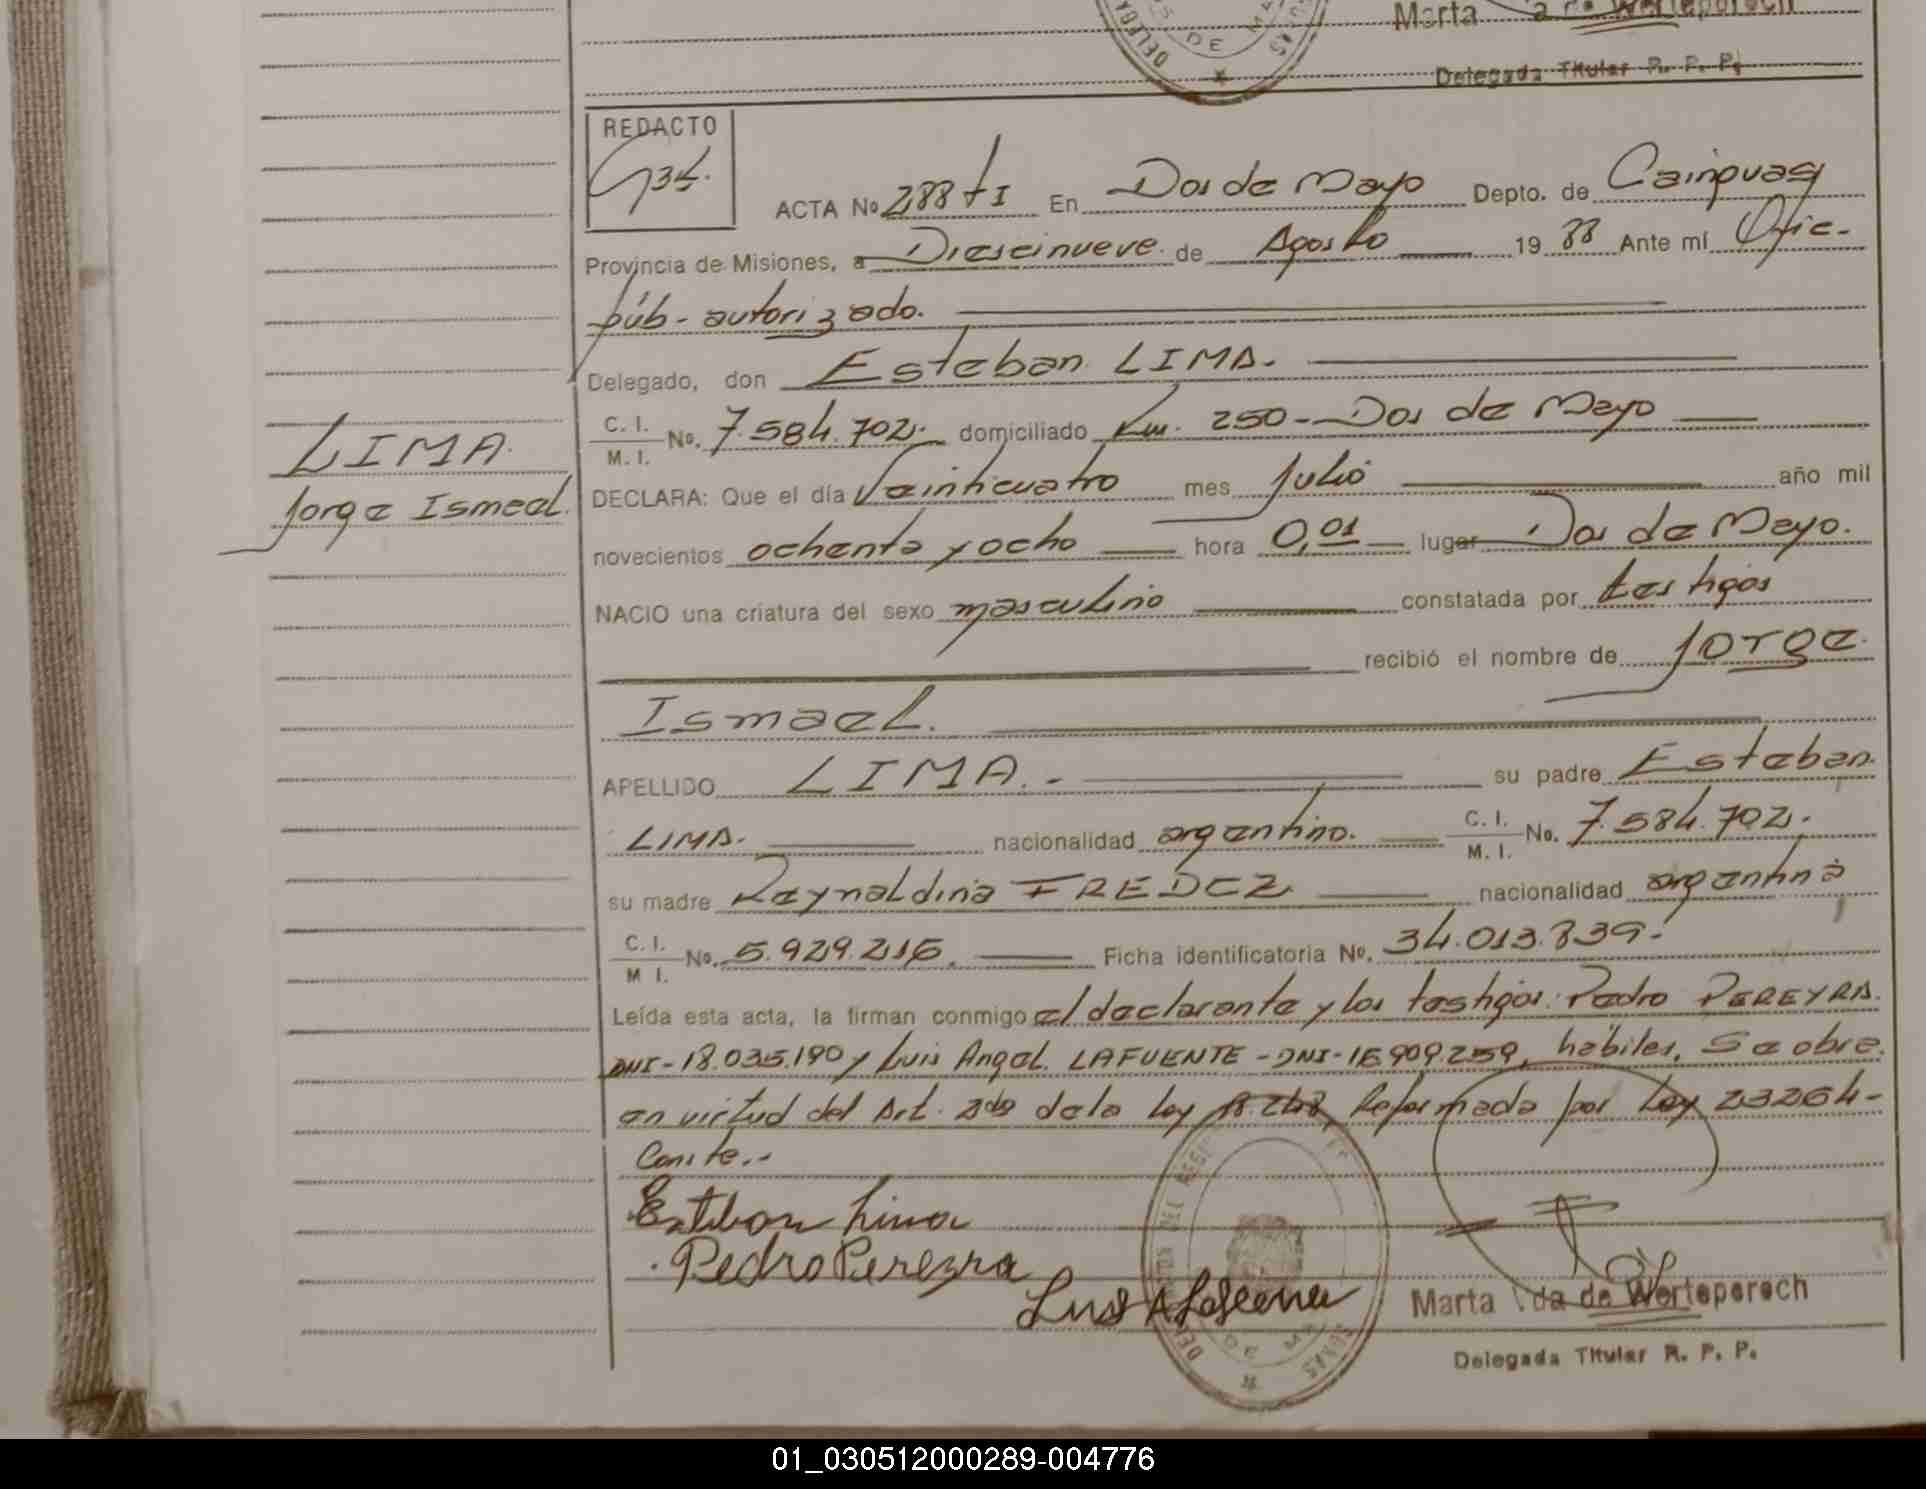 DE
DELEGA
Marta a de Werteperech
Delegada Titular R. P. P.
REDACTO
ACTA No 288 t I En Dos de Mayo Depto. de Cainguas
Provincia de Misiones, a Diescinueve de Agosto 19 88 Ante mí Ofic-
púb- autorizado.
Delegado, don Esteban LIMA.
C. I. / M. I. No. 7.584.702. domiciliado Km. 250 - Dos de Mayo
LIMA.
Jorge Ismael.
DECLARA: Que el día Veinticuatro mes Julio año mil
novecientos ochenta y ocho hora 0,01 lugar Dos de Mayo.
NACIO una criatura del sexo masculino constatada por testigos
recibió el nombre de Jorge
Ismael.
APELLIDO LIMA.- su padre Esteban
LIMA. nacionalidad argentino. C. I. / M. I. No. 7.584.702.
su madre Reynaldina FREDEZ nacionalidad argentina
C. I. / M I. No. 5.929.216. Ficha identificatoria No. 34.013.839.-
Leída esta acta, la firman conmigo el declarante y los testigos: Pedro PEREYRA.
DNI-18.035.190 y Luis Angel LAFUENTE - DNI-16.909.259, hábiles. Se obre.
en virtud del Art. 2do de la Ley 18.248 Reformada por Ley 23264-
Conste.-
Esteban Lima
Pedro Pereyra
Luis A
Marta da de Werteperech
Delegada Titular R. P. P.
01_030512000289-004776